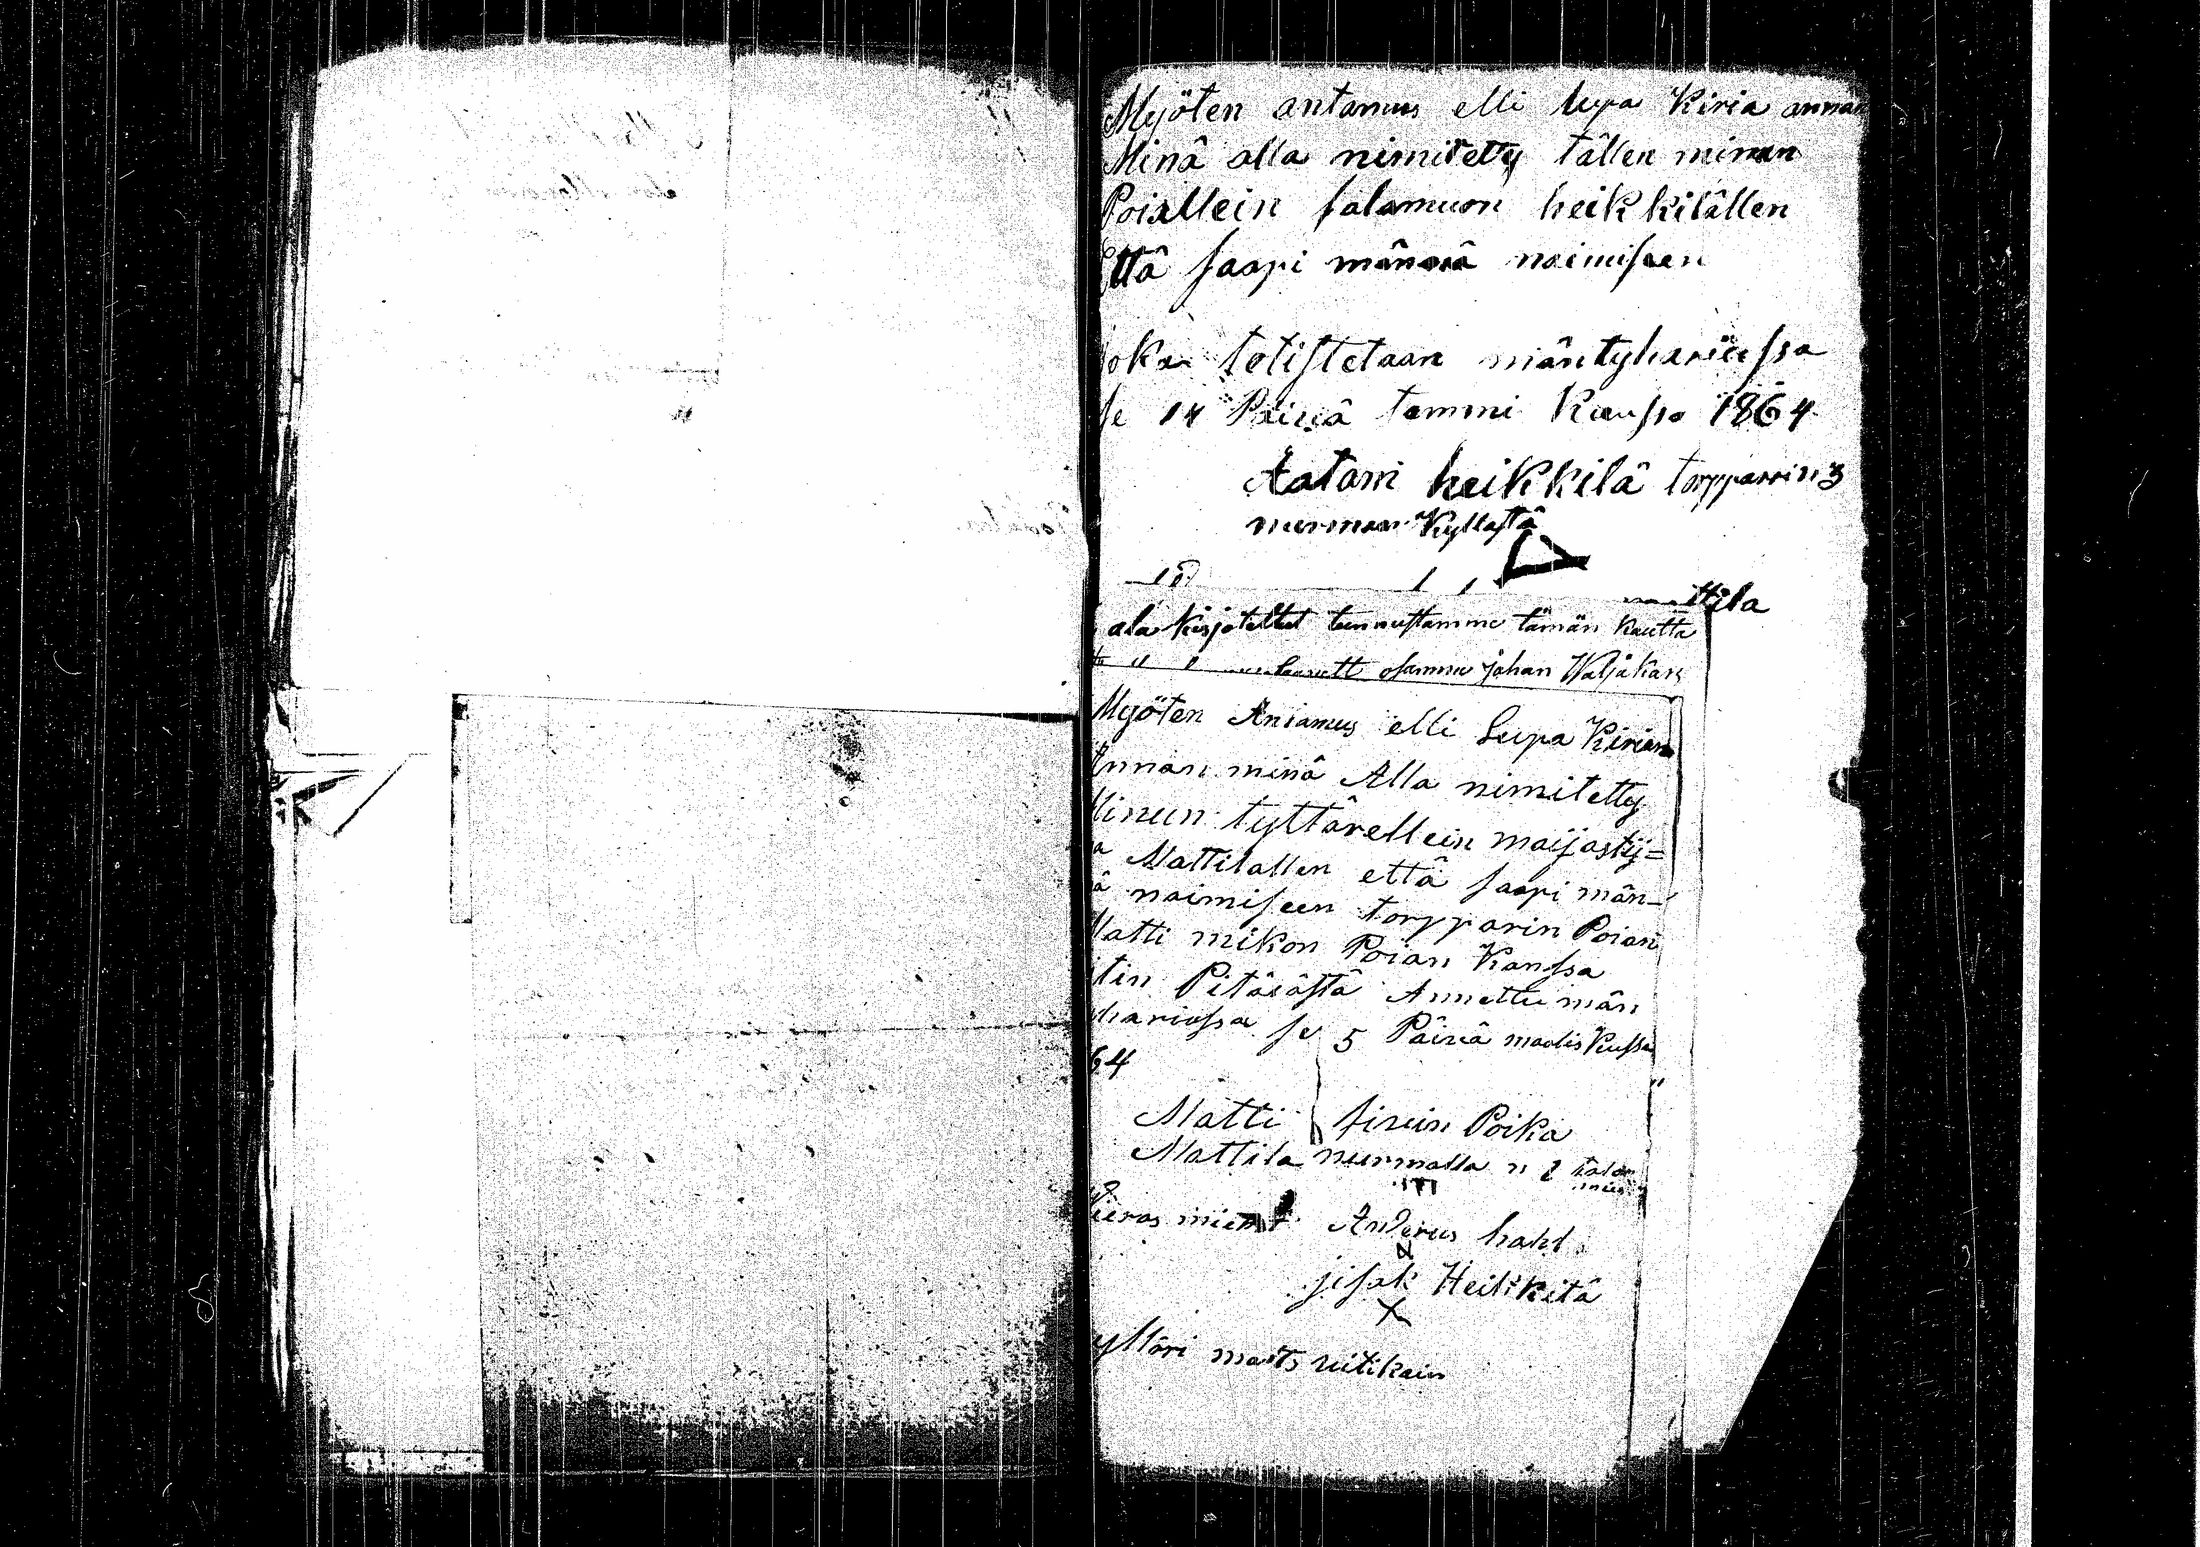 Myöten antamus elli lupa Kiria annan
Minä alla nimitetty tällen minun
Poiallein salamuon heikkilällen
Että saapi männä naimiseen
joka totistetaan mäntyhariussa
se 14 Päivä tammi Kuussa 1864
Aatami heikkilä torpparri n 3
nurmaan Kyllästä
ttila
ala kirjotettut tunnustamme tämän Kautta
osamme johan Waljakan
Myöten Antamus elli Lupa Kirian
Annan minä Alla nimitetty
Minun tyttärellein maijastij=
a Mattilallen että saapi män-
ä naimiseen torpparin Poian
Matti mikon Poian Kanssa
tin Pitäjästä Annettu män
hariossa se 5 Päivä maalis Kussa
64
Matti simin Poika
Mattila nurmalla n 2 talon
mies
Vieras miehet Anderus hahl
jisak Heikkilä
X